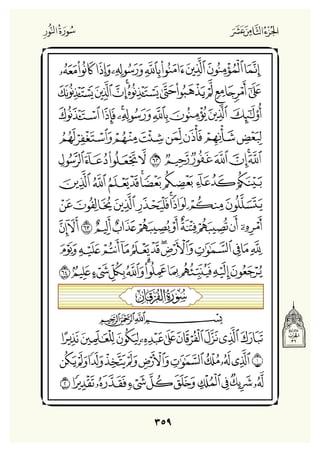 الجُزْءُ الثَّامِنَ عَشَرَ
سُورَةُ النُّورِ
إِنَّمَا ٱلْمُؤْمِنُونَ ٱلَّذِينَ ءَامَنُوا۟ بِٱللَّهِ وَرَسُولِهِۦ وَإِذَا كَانُوا۟ مَعَهُۥ
عَلَىٰٓ أَمْرٍ جَامِعٍ لَّمْ يَذْهَبُوا۟ حَتَّىٰ يَسْتَـْٔذِنُوهُ ۚ إِنَّ ٱلَّذِينَ يَسْتَـْٔذِنُونَكَ
أُو۟لَٰٓئِكَ ٱلَّذِينَ يُؤْمِنُونَ بِٱللَّهِ وَرَسُولِهِۦ ۚ فَإِذَا ٱسْتَـْٔذَنُوكَ
لِبَعْضِ شَأْنِهِمْ فَأْذَن لِّمَن شِئْتَ مِنْهُمْ وَٱسْتَغْفِرْ لَهُمُ
ٱللَّهَ ۚ إِنَّ ٱللَّهَ غَفُورٌ رَّحِيمٌ ٦٢ لَّا تَجْعَلُوا۟ دُعَآءَ ٱلرَّسُولِ
بَيْنَكُمْ كَدُعَآءِ بَعْضِكُم بَعْضًا ۚ قَدْ يَعْلَمُ ٱللَّهُ ٱلَّذِينَ
يَتَسَلَّلُونَ مِنكُمْ لِوَاذًا ۚ فَلْيَحْذَرِ ٱلَّذِينَ يُخَالِفُونَ عَنْ
أَمْرِهِۦٓ أَن تُصِيبَهُمْ فِتْنَةٌ أَوْ يُصِيبَهُمْ عَذَابٌ أَلِيمٌ ٦٣ أَلَآ إِنَّ
لِلَّهِ مَا فِى ٱلسَّمَٰوَٰتِ وَٱلْأَرْضِ ۖ قَدْ يَعْلَمُ مَآ أَنتُمْ عَلَيْهِ وَيَوْمَ
يُرْجَعُونَ إِلَيْهِ فَيُنَبِّئُهُم بِمَا عَمِلُوا۟ ۗ وَٱللَّهُ بِكُلِّ شَىْءٍ عَلِيمٌ ٦٤
سُورَةُ الفُرْقَانِ
بِسْمِ ٱللَّهِ ٱلرَّحْمَٰنِ ٱلرَّحِيمِ
تَبَارَكَ ٱلَّذِى نَزَّلَ ٱلْفُرْقَانَ عَلَىٰ عَبْدِهِۦ لِيَكُونَ لِلْعَٰلَمِينَ نَذِيرًا
١ ٱلَّذِى لَهُۥ مُلْكُ ٱلسَّمَٰوَٰتِ وَٱلْأَرْضِ وَلَمْ يَتَّخِذْ وَلَدًا وَلَمْ يَكُن
لَّهُۥ شَرِيكٌ فِى ٱلْمُلْكِ وَخَلَقَ كُلَّ شَىْءٍ فَقَدَّرَهُۥ تَقْدِيرًا ٢
٣٥٩